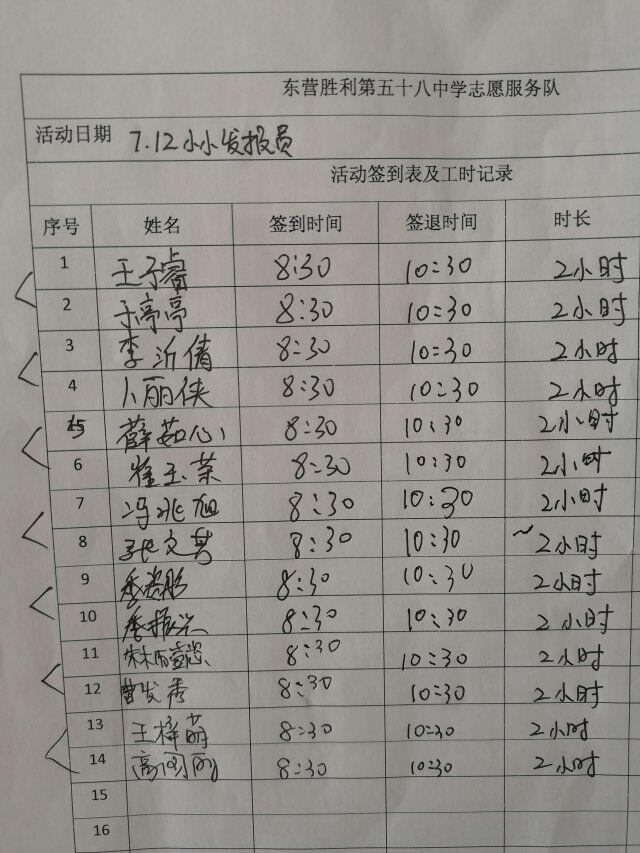 东营胜利第五十八中学志愿服务队
活动日期 7.12小小发报员
活动签到表及工时记录
序号 姓名 签到时间 签退时间 时长
1 王子睿 8:30 10:30 2小时
2 于亭亭 8:30 10:30 2小时
3 李沂倩 8:30 10:30 2小时
4 卜丽侠 8:30 10:30 2小时
5 薛茹心 8:30 10:30 2小时
6 崔玉荣 8:30 10:30 2小时
7 冯兆旭 8:30 10:30 2小时
8 张文其 8:30 10:30 2小时
9 8:30 10:30 2小时
10 季振兴 8:30 10:30 2小时
11 8:30 10:30 2小时
12 曹发秀 8:30 10:30 2小时
13 王梓萌 8:30 10:30 2小时
14 高闪闪 8:30 10:30 2小时
15
16